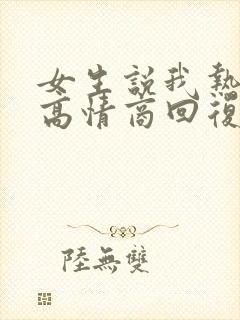 女生説我熱
高情商回復
陸無雙